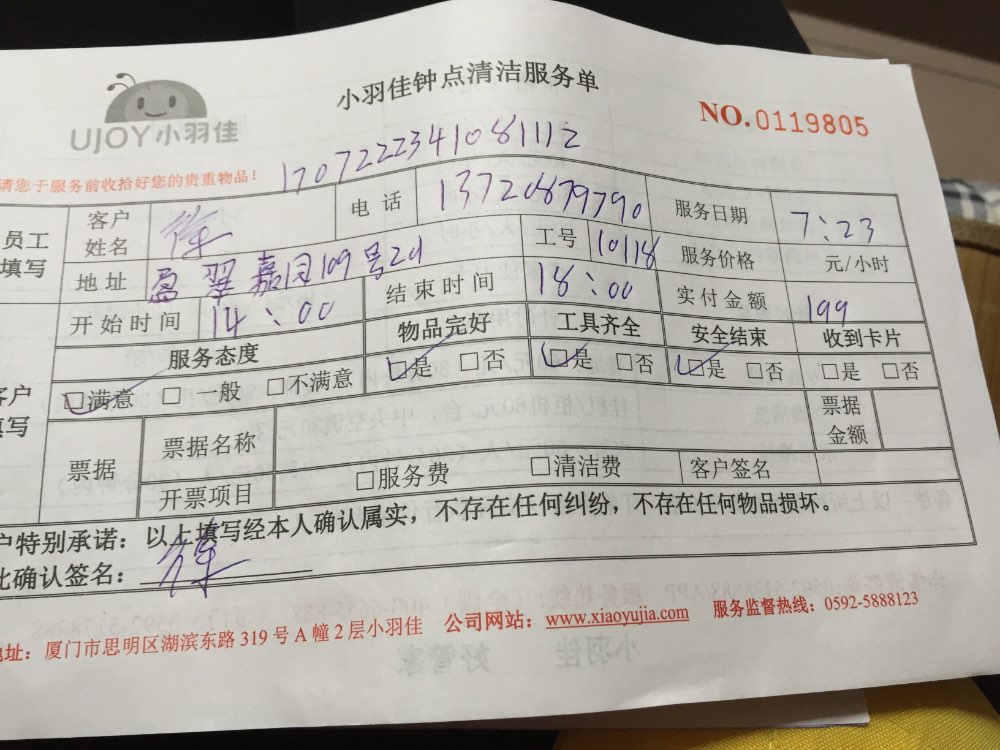 小羽佳钟点清洁服务单
UJOY小羽佳
NO.0119805
请您于服务前收拾好您的贵重物品！
1707222341081112
员工填写
客户姓名 徐 电话 13720879790 服务日期 7:23
地址 盈翠嘉园109号201 工号 10118 服务价格 元/小时
开始时间 14:00 结束时间 18:00 实付金额 199
客户填写
服务态度 物品完好 工具齐全 安全结束 收到卡片
□满意 □一般 □不满意 □是 □否 □是 □否 □是 □否 □是 □否
票据 票据名称 票据金额
开票项目 □服务费 □清洁费 客户签名
户特别承诺：以上填写经本人确认属实，不存在任何纠纷，不存在任何物品损坏。
此确认签名： 徐
地址：厦门市思明区湖滨东路319号A幢2层小羽佳 公司网站：www.xiaoyujia.com 服务监督热线：0592-5888123